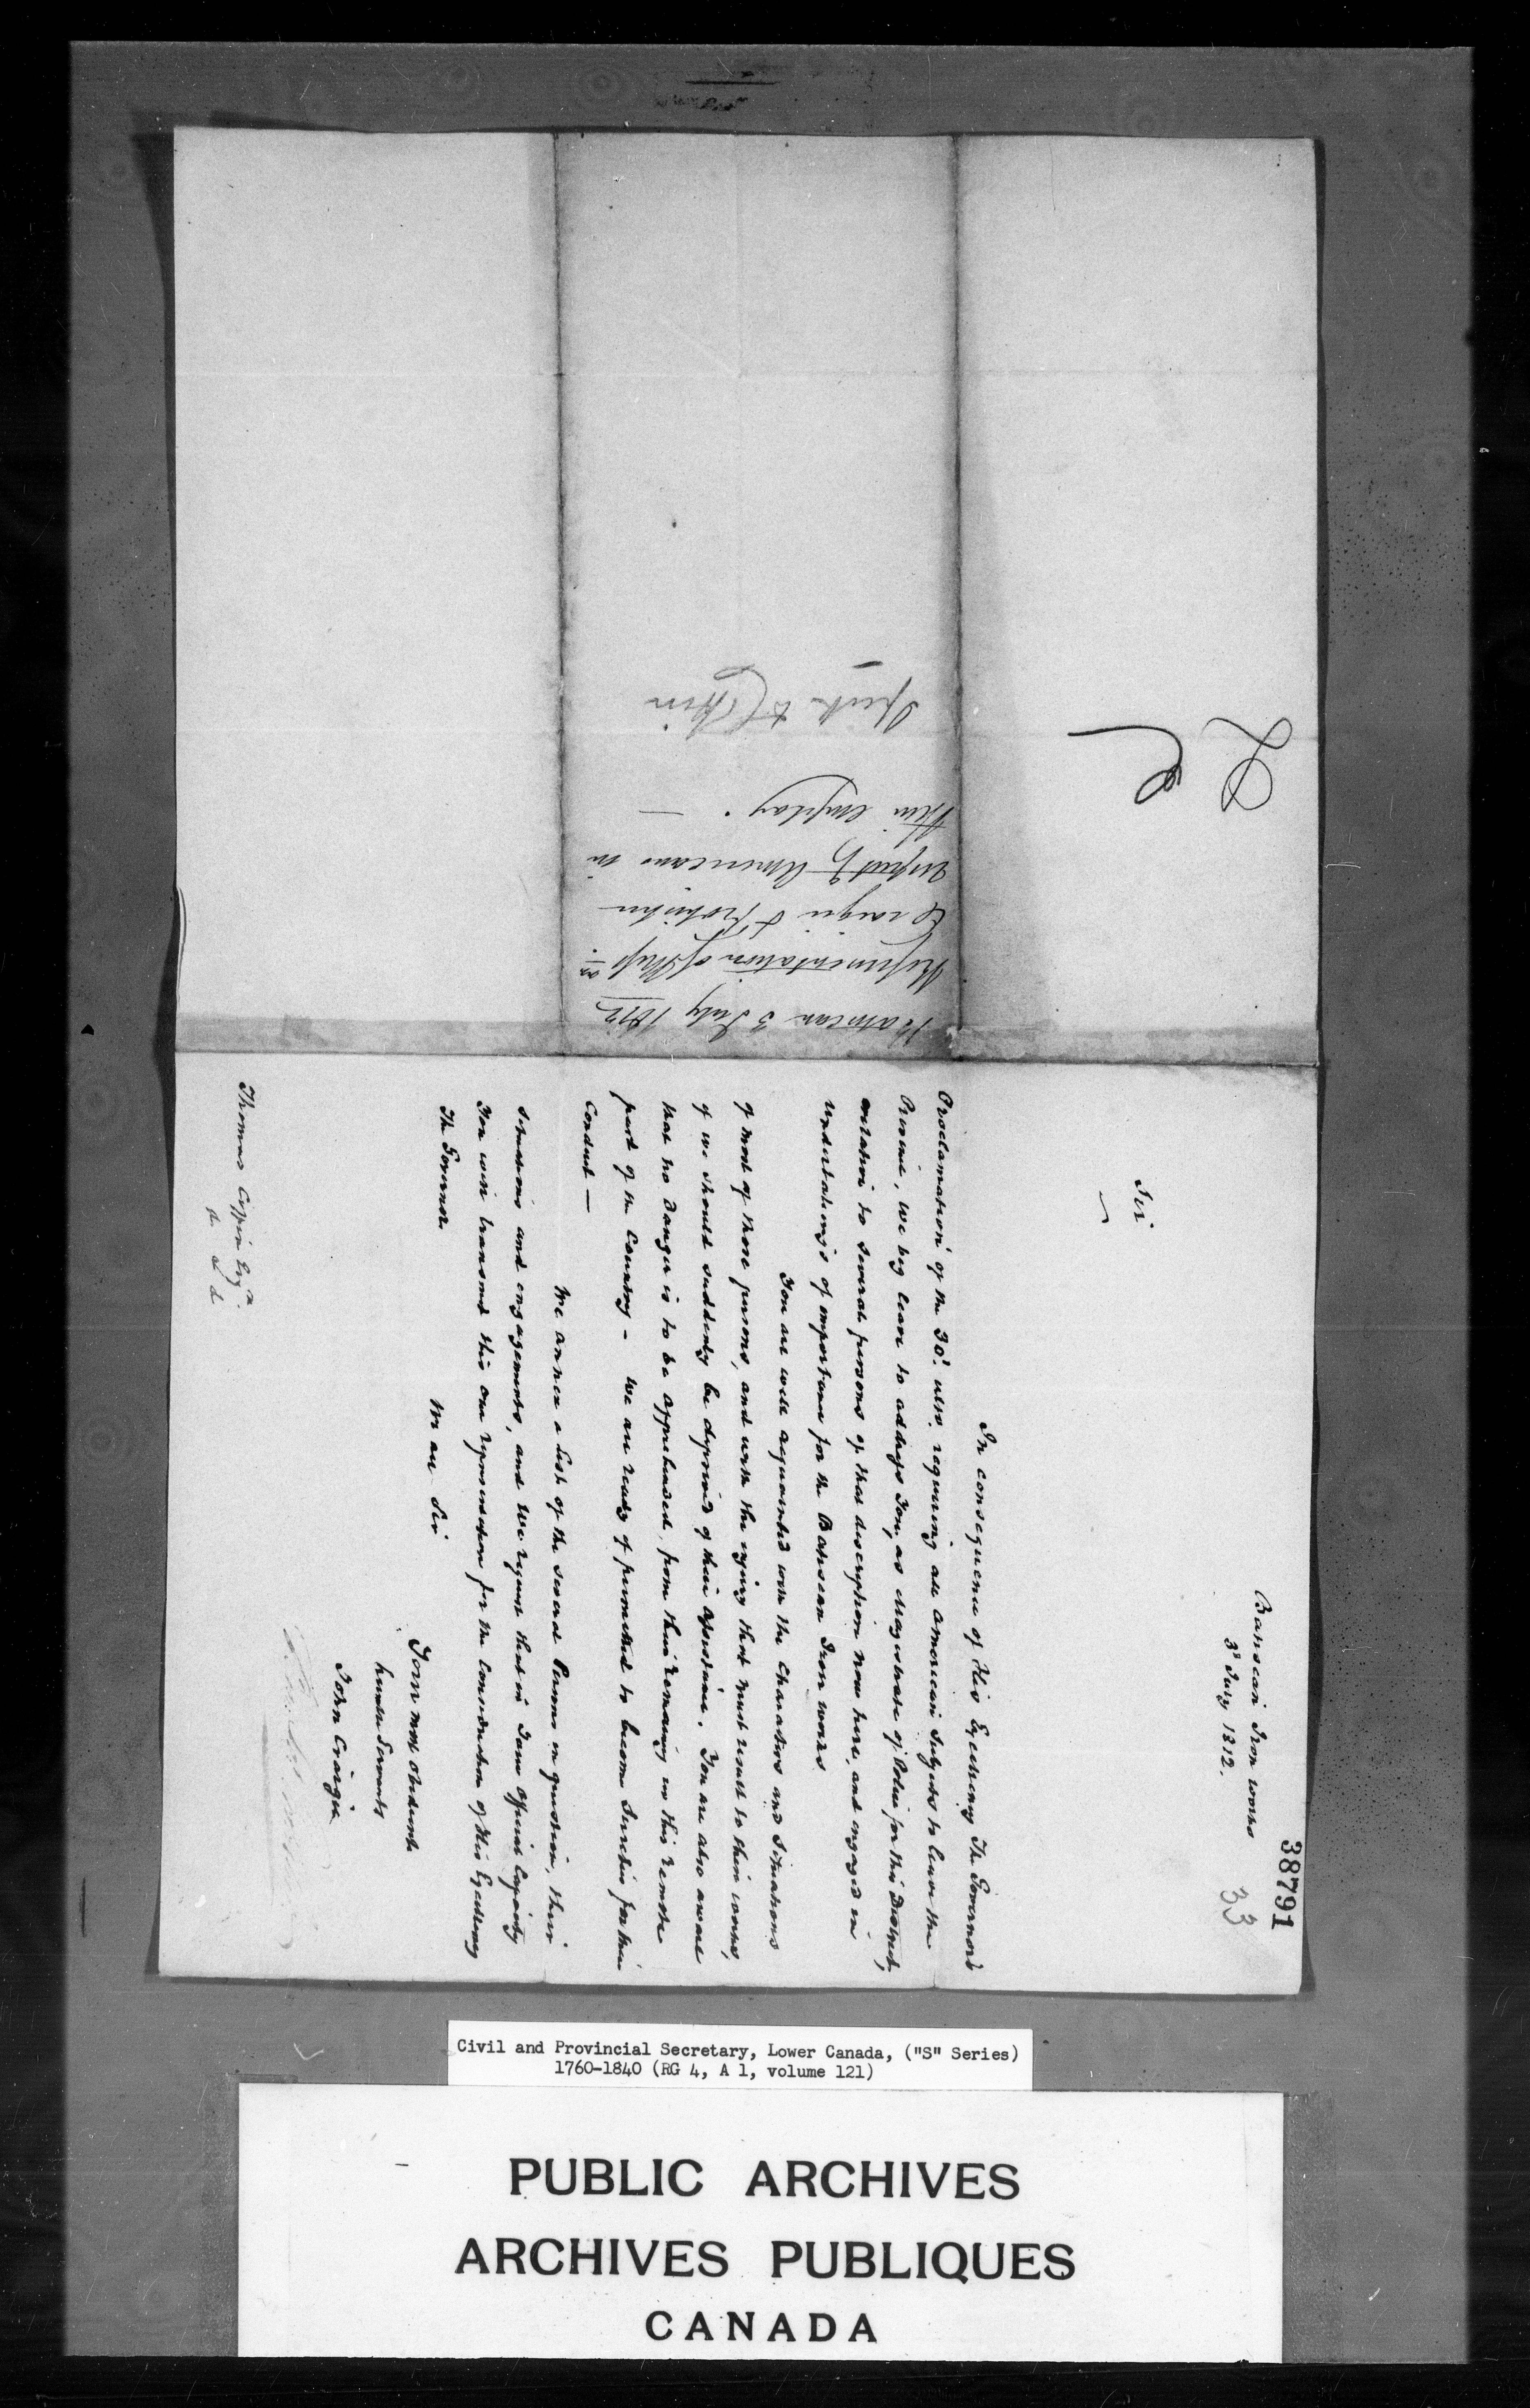 38791
33
Batiscan Iron works
3d July 1812.
Sir
In consequence of His Excellency The Governors
Proclamation of the 30th ulto. requiring all American Subjects to leave the
Province, we beg leave to address You, as Magistrate of Police for this District,
in relation to several persons of that description now here, and engaged in
undertakings of importance for the Batiscan Iron works
You are well acquainted with the Characters and Situations
of most of those persons, and with the injury that must result to these works,
if we should suddenly be deprived of their assistance. You are also aware
that no danger is to be apprehended, from their remaining in this remote
part of the Country - We are ready if permitted to become Sureties for their
Conduct —
We annex a List of the several Persons in question, their
situations and engagements, and We request that in Your Official Capacity
You will transmit this our representation for the Consideration of His Excellency
The Governor.
We are Sir
Your most obedient
humble Servants
John Craigie
Thomas Coffin Esqr.
&c &c &c
Batiscan 3 July 1812
Representation of Messrs.
Craigie &
respectg Americans in
their employ. —
Coffin
LC
Civil and Provincial Secretary, Lower Canada, ("S" Series)
1760-1840 (RG 4, A 1, volume 121)
PUBLIC ARCHIVES
ARCHIVES PUBLIQUES
CANADA